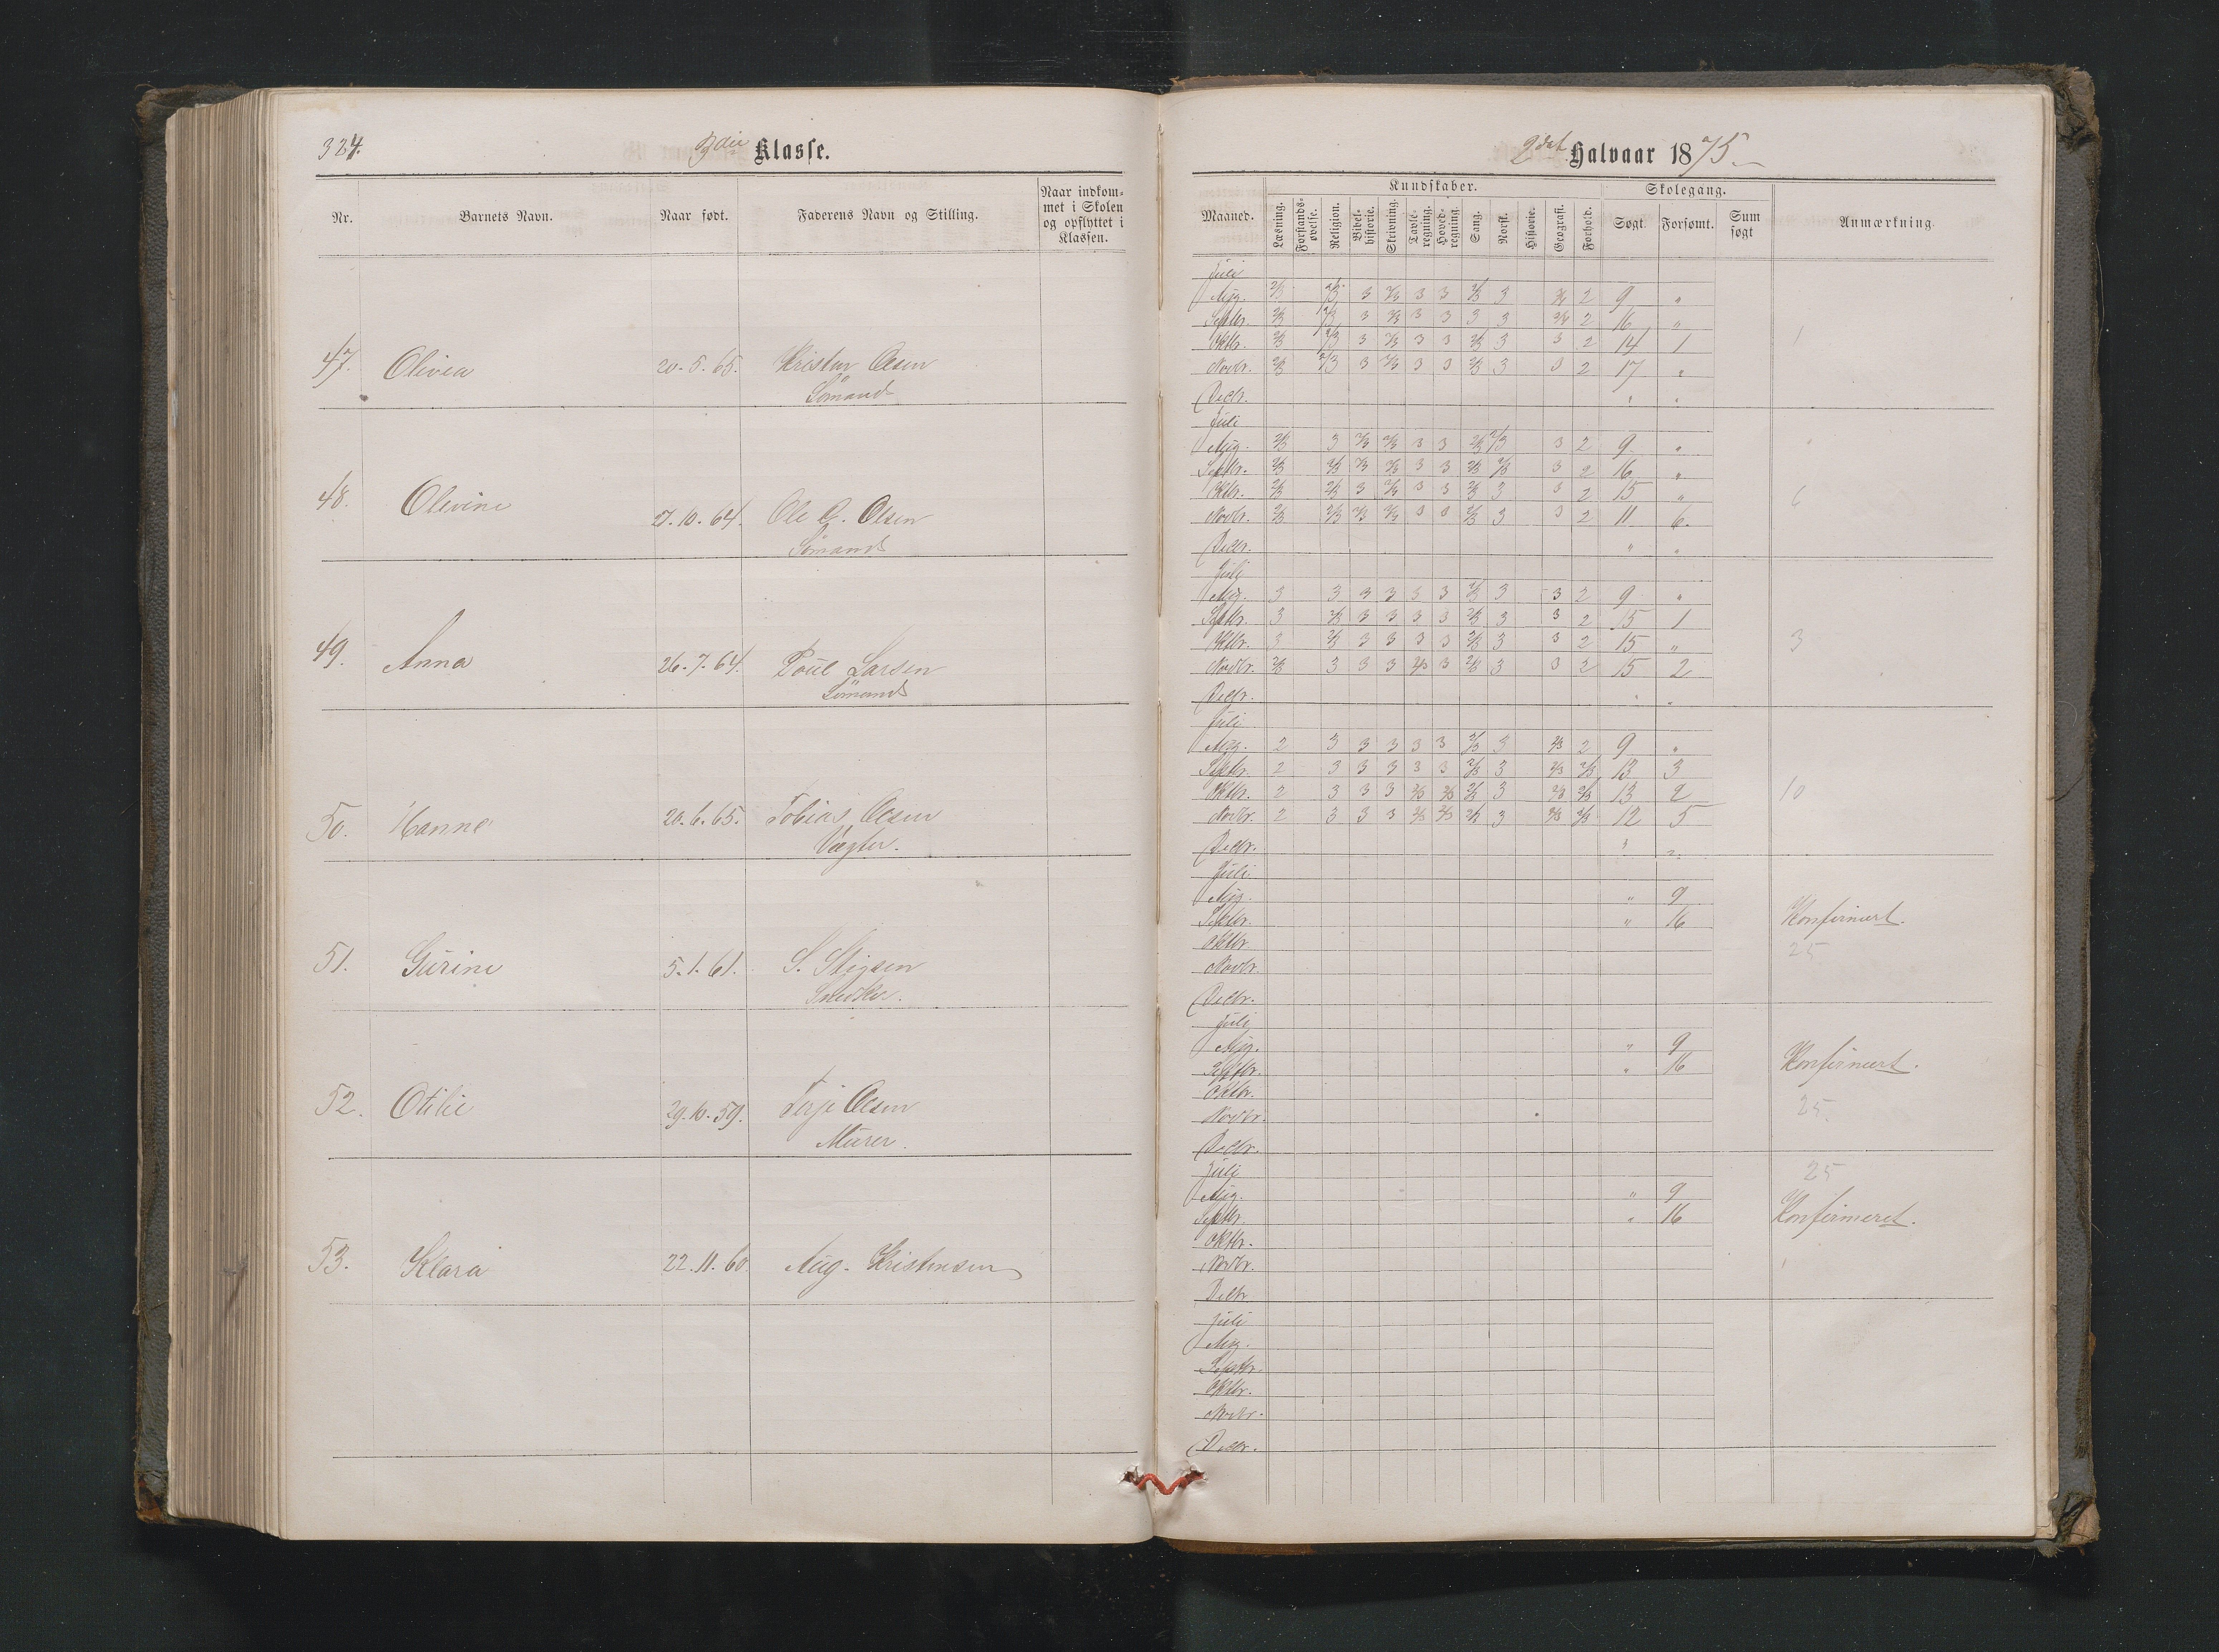 324.
3die Klasse.
Nr. Barnets Navn. Naar født. Faderens Navn og Stilling. Naar indkom-
met i Skolen
og opflyttet i
Klassen.
47. Olivia 20.5.65. Kristen Olsen
Sømand
48. Olevine 27.10.64. Ole G. Olsen
Sømand
49. Anna 26.7.64. Poul Larsen
Sømand
50. Hanne 20.6.65. Tobias Olsen
Vægter.
51. Gurine 5.1.61. S. Stigsen
Snedker.
52. Otilie 29.10.59. Terje Olsen
Murer.
53. Klara 22.11.60. Aug. Kristensen
2det Halvaar 1875
Kundskaber. Skolegang.
Maaned. Læsning. Forstands-
øvelse. Religion. Bibel-
historie. Skrivning. Tavle-
regning. Hoved-
regning. Sang. Norsk. Historie. Geografi. Forhold. Søgt. Forsømt. Sum
søgt Anmærkning.
Juli
Aug. 2/3 2/3 3 2/3 3 3 2/3 3 3/4 2 9 "
Septbr. 2/3 2/3 3 2/3 3 3 3 3 3/4 2 16 "
Oktbr. 2/3 2/3 3 2/3 3 3 2/3 3 3 2 14 1 1
Novbr. 2/3 2/3 3 2/3 3 3 2/3 3 3 2 17 "
Decbr. " "
Juli
Aug. 2/3 3 2/3 2/3 3 3 2/3 2/3 3 2 9 "
Septbr. 2/3 2/3 2/3 2/3 3 3 2/3 2/3 3 2 16 "
Oktbr. 2/3 2/3 3 2/3 3 3 2/3 3 3 2 15 " 6
Novbr. 2/3 2/3 2/3 2/3 3 3 2/3 3 3 2 11 6.
Decbr. " "
Juli
Aug. 3 3 3 3 3 3 2/3 3 3 2 9 "
Septbr. 3 2/3 3 3 3 3 2/3 3 3 2 15 1
Oktbr. 3 2/3 3 3 3 3 2/3 3 3 2 15 " 3
Novbr. 2/3 3 3 3 2/3 3 2/3 3 3 2 15 2
Decbr. " "
Juli
Aug. 2 3 3 3 3 3 2/3 3 2/3 2 9 "
Septbr. 2 3 3 3 3 3 2/3 3 2/3 2/3 13 3
Oktbr. 2 3 3 3 2/3 2/3 2/3 3 2/3 2/3 13 2 10
Novbr. 2 3 3 3 2/3 2/3 2/3 3 2/3 2/3 12 5
Decbr. " "
Juli
Aug. " 9
Septbr. " 16 Konfirmert.
Oktbr. 25
Novbr.
Decbr.
Juli
Aug. " 9
Septbr. " 16 Konfirmert.
Oktbr.
Novbr. 25
Decbr.
Juli 25
Aug. " 9
Septbr. " 16 Konfirmeret.
Oktbr.
Novbr.
Decbr.
Juli
Aug.
Septbr.
Oktbr.
Novbr.
Decbr.